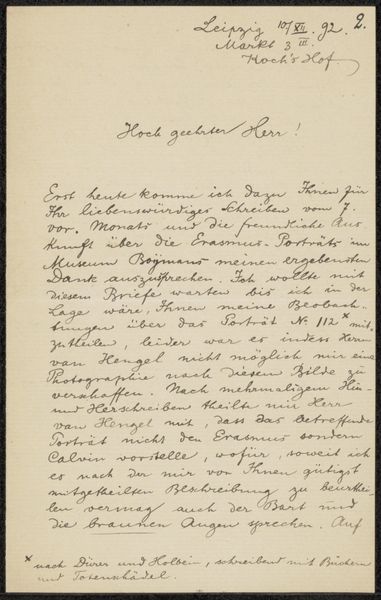 2.
Leipzig 10/XII. 92.
Markt 3 III.
Koch's Hof
Hoch geehrter Herr!
Erst heute komme ich dazu Ihnen für
Ihr liebenswürdiges Schreiben vom 7.
vor. Monats und die freundliche Aus
kunft über die Erasmus-Porträts im
Museum Boÿmans meinen ergebensten
Dank auszusprechen. Ich wollte mit
diesem Briefe warten bis ich in der
Lage wäre, Ihnen meine Beobach-
tungen über das Porträt No. 112 x mit-
zutheilen, leider war es indess Herrn
van Hengel nicht möglich mir eine
Photographie nach diesem Bilde zu
verschaffen. Nach mehrmaligem Hin-
und Herschreiben theilte mir Herr
van Hengel mit, dass das betreffende
Porträt nicht den Erasmus sondern
Calvin vorstelle, wofür, soweit ich
es nach der mir von Ihnen gütigst
mitgetheilten Beschreibung zu beurthei-
len vermag auch der Bart und
die braunen Augen sprechen. Auf
x nach Dürer und Holbein, schreibend mit Büchern
und Totenschädel.